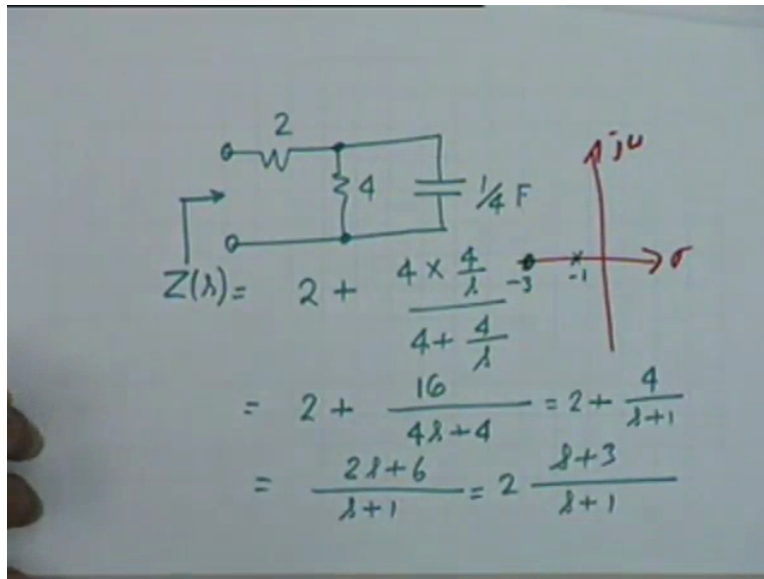 2
4
1/4 F
jω
σ
-3
-1
Z(s) = 2 + (4 × 4/s)/(4 + 4/s)
= 2 + 16/(4s+4) = 2 + 4/(s+1)
= (2s+6)/(s+1) = 2 (s+3)/(s+1)